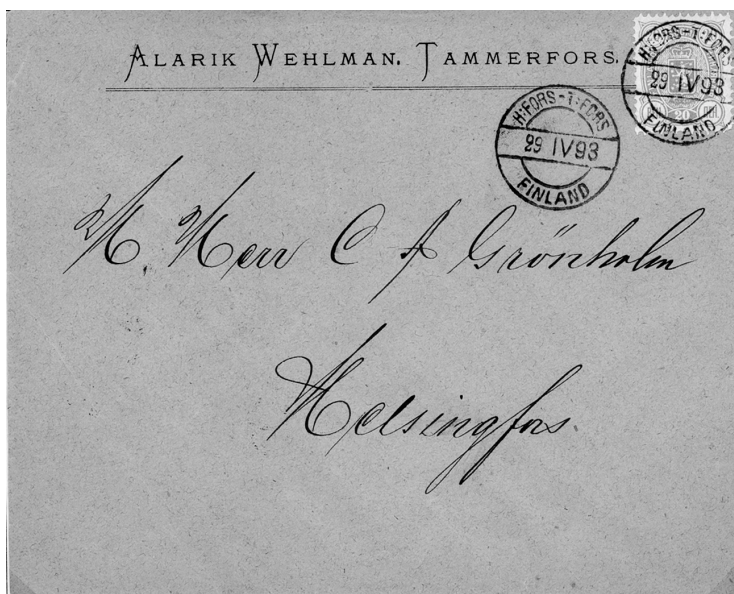 ALARIK WEHLMAN. TAMMERFORS.
H:FORS-T:FORS
29 IV 93
FINLAND
H:FORS-T:FORS
29 IV 93
FINLAND
20
H. Herr C A Grönholm
Helsingfors